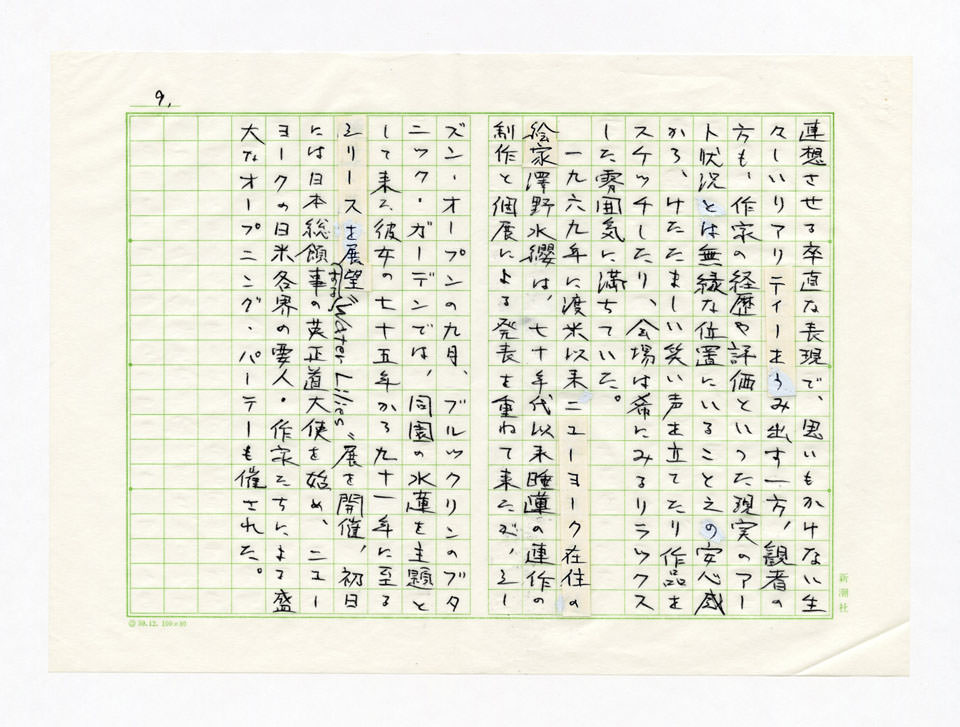 9.
連想させる卒直な表現で、思いもかけない生
々しいリアリティーをうみ出す一方、観者の
方も、作家の経歴や評価といった現実のアー
ト状況とは無縁な位置にいることえの安心感
から、けたたましい笑い声を立てたり作品を
スケッチしたり、会場は希にみるリラックス
した雰囲気に満ちていた。
一九六九年に渡米以来ニューヨーク在住の
絵家澤野水纓は、七十年代以来睡蓮の連作の
制作と個展による発表を重ねて来たが、シー
ズン・オープンの九月、ブルックリンのブタ
ニック・ガーデンでは、同園の水蓮を主題と
して来た彼女の七十五年から九十一年に至る
シリースを展望する〝Water Lilies〟展を開催、初日
には日本総領事の英正道大使を始め、ニュー
ヨークの日米各界の要人・作家たちによる盛
大なオープニング・パーテーも催された。
新潮社
59.12.100×80